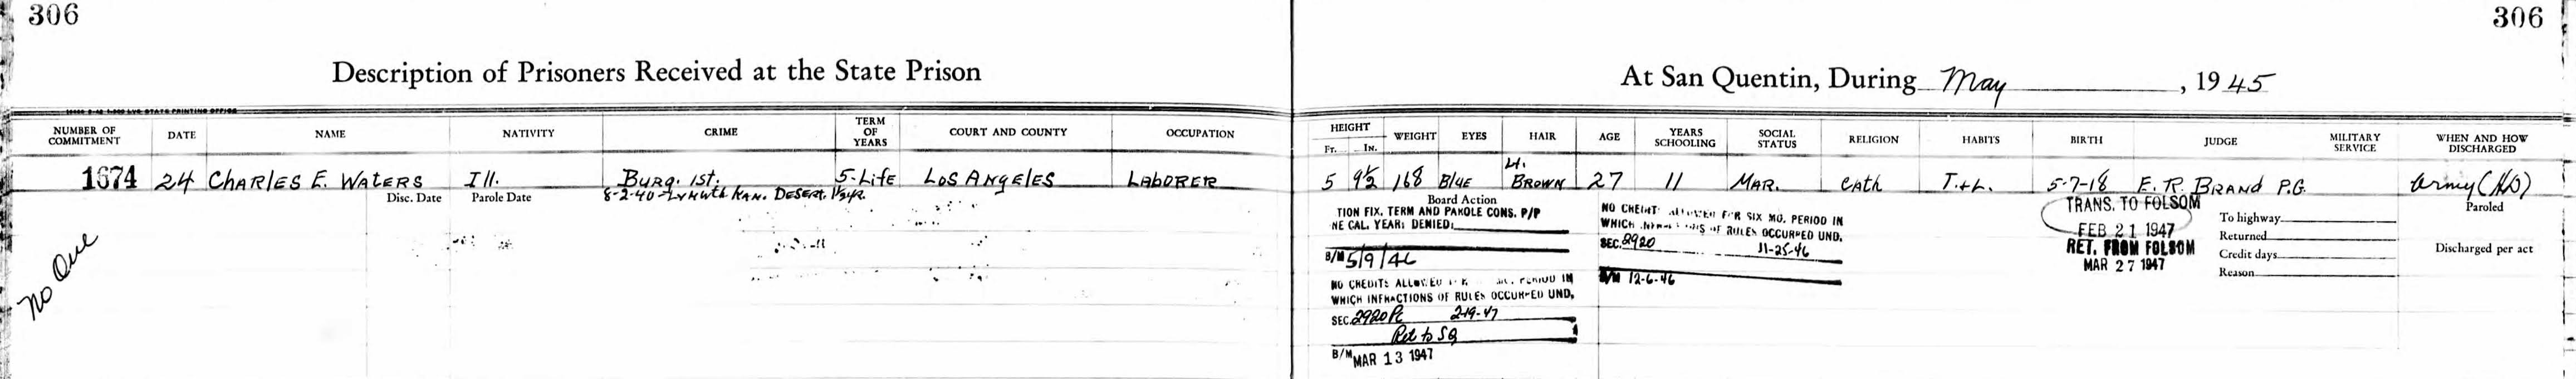 306
306
Description of Prisoners Received at the State Prison
At San Quentin, During May, 1945
NUMBER OF COMMITMENT DATE NAME NATIVITY CRIME TERM OF YEARS COURT AND COUNTY OCCUPATION
HEIGHT Ft. In. WEIGHT EYES HAIR AGE YEARS SCHOOLING SOCIAL STATUS RELIGION HABITS BIRTH JUDGE MILITARY SERVICE WHEN AND HOW DISCHARGED
1674 24 CHARLES E. WATERS Ill. BURG. 1st. 5-Life LOS ANGELES LABORER
5 9½ 168 Blue Lt. BROWN 27 11 MAR. Cath T.+L. 5-7-18 E. R. BRAND P.G. Army (HD)
Disc. Date Parole Date 8-2-40 LVNWTH KAN. DESERT.
No One
Board Action
TION FIX. TERM AND PAROLE CONS. P/P
NE CAL. YEAR: DENIED:
B/M 5/9/46
NO CREDITS ALLOWED PERIOD IN
WHICH INFRACTIONS OF RULES OCCURRED UND.
SEC. 2920 PC 2-19-47
Ret to SQ
B/M MAR 13 1947
NO CREDIT ALLOWED FOR SIX MO. PERIOD IN
WHICH OF RULES OCCURRED UND.
SEC. 2920 11-25-46
B/M 12-6-46
TRANS. TO FOLSOM
FEB 21 1947
RET. FROM FOLSOM
MAR 27 1947
To highway
Returned
Credit days
Reason
Paroled
Discharged per act